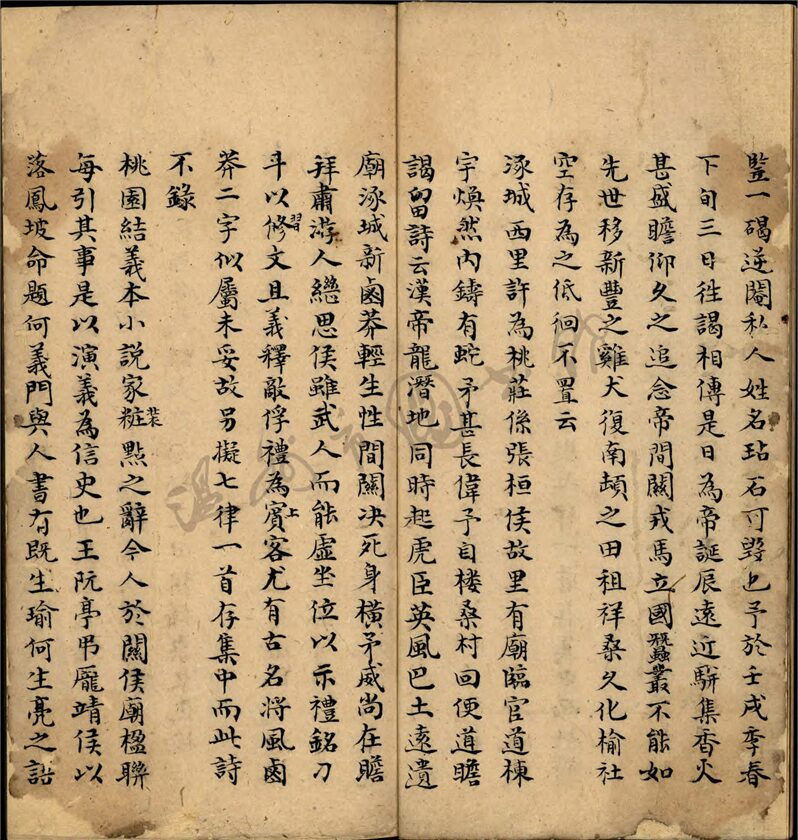 豎一碣逆閹私人姓名玷石可毀也予於壬戌季春
下旬三日徃謁相傳是日為帝誕辰遠近駢集香火
甚盛瞻仰久之追念帝間關戎馬立國蠶叢不能如
先世移新豐之雞犬復南頓之田租祥桑久化榆社
空存為之低徊不置云
涿城西里許為桃莊係張桓侯故里有廟臨官道棟
宇煥然內鑄有蛇矛甚長偉予自樓桑村回便道瞻
謁留詩云漢帝龍潛地同時起虎臣英風巴土遠遺
廟涿城新鹵莽輕生性間關決死身橫矛威尚在瞻
拜肅游人繼思侯雖武人而能虛坐位以示禮銘刀
斗以修習文且義釋敵俘禮為上賓客尤有古名將風鹵
莽二字似屬未妥故另擬七律一首存集中而此詩
不錄
桃園結義本小說家粧裝點之辭今人於關侯廟楹聯
每引其事是以演義為信史也王阮亭弔龐靖侯以
落鳳坡命題何義門與人書有既生瑜何生亮之語